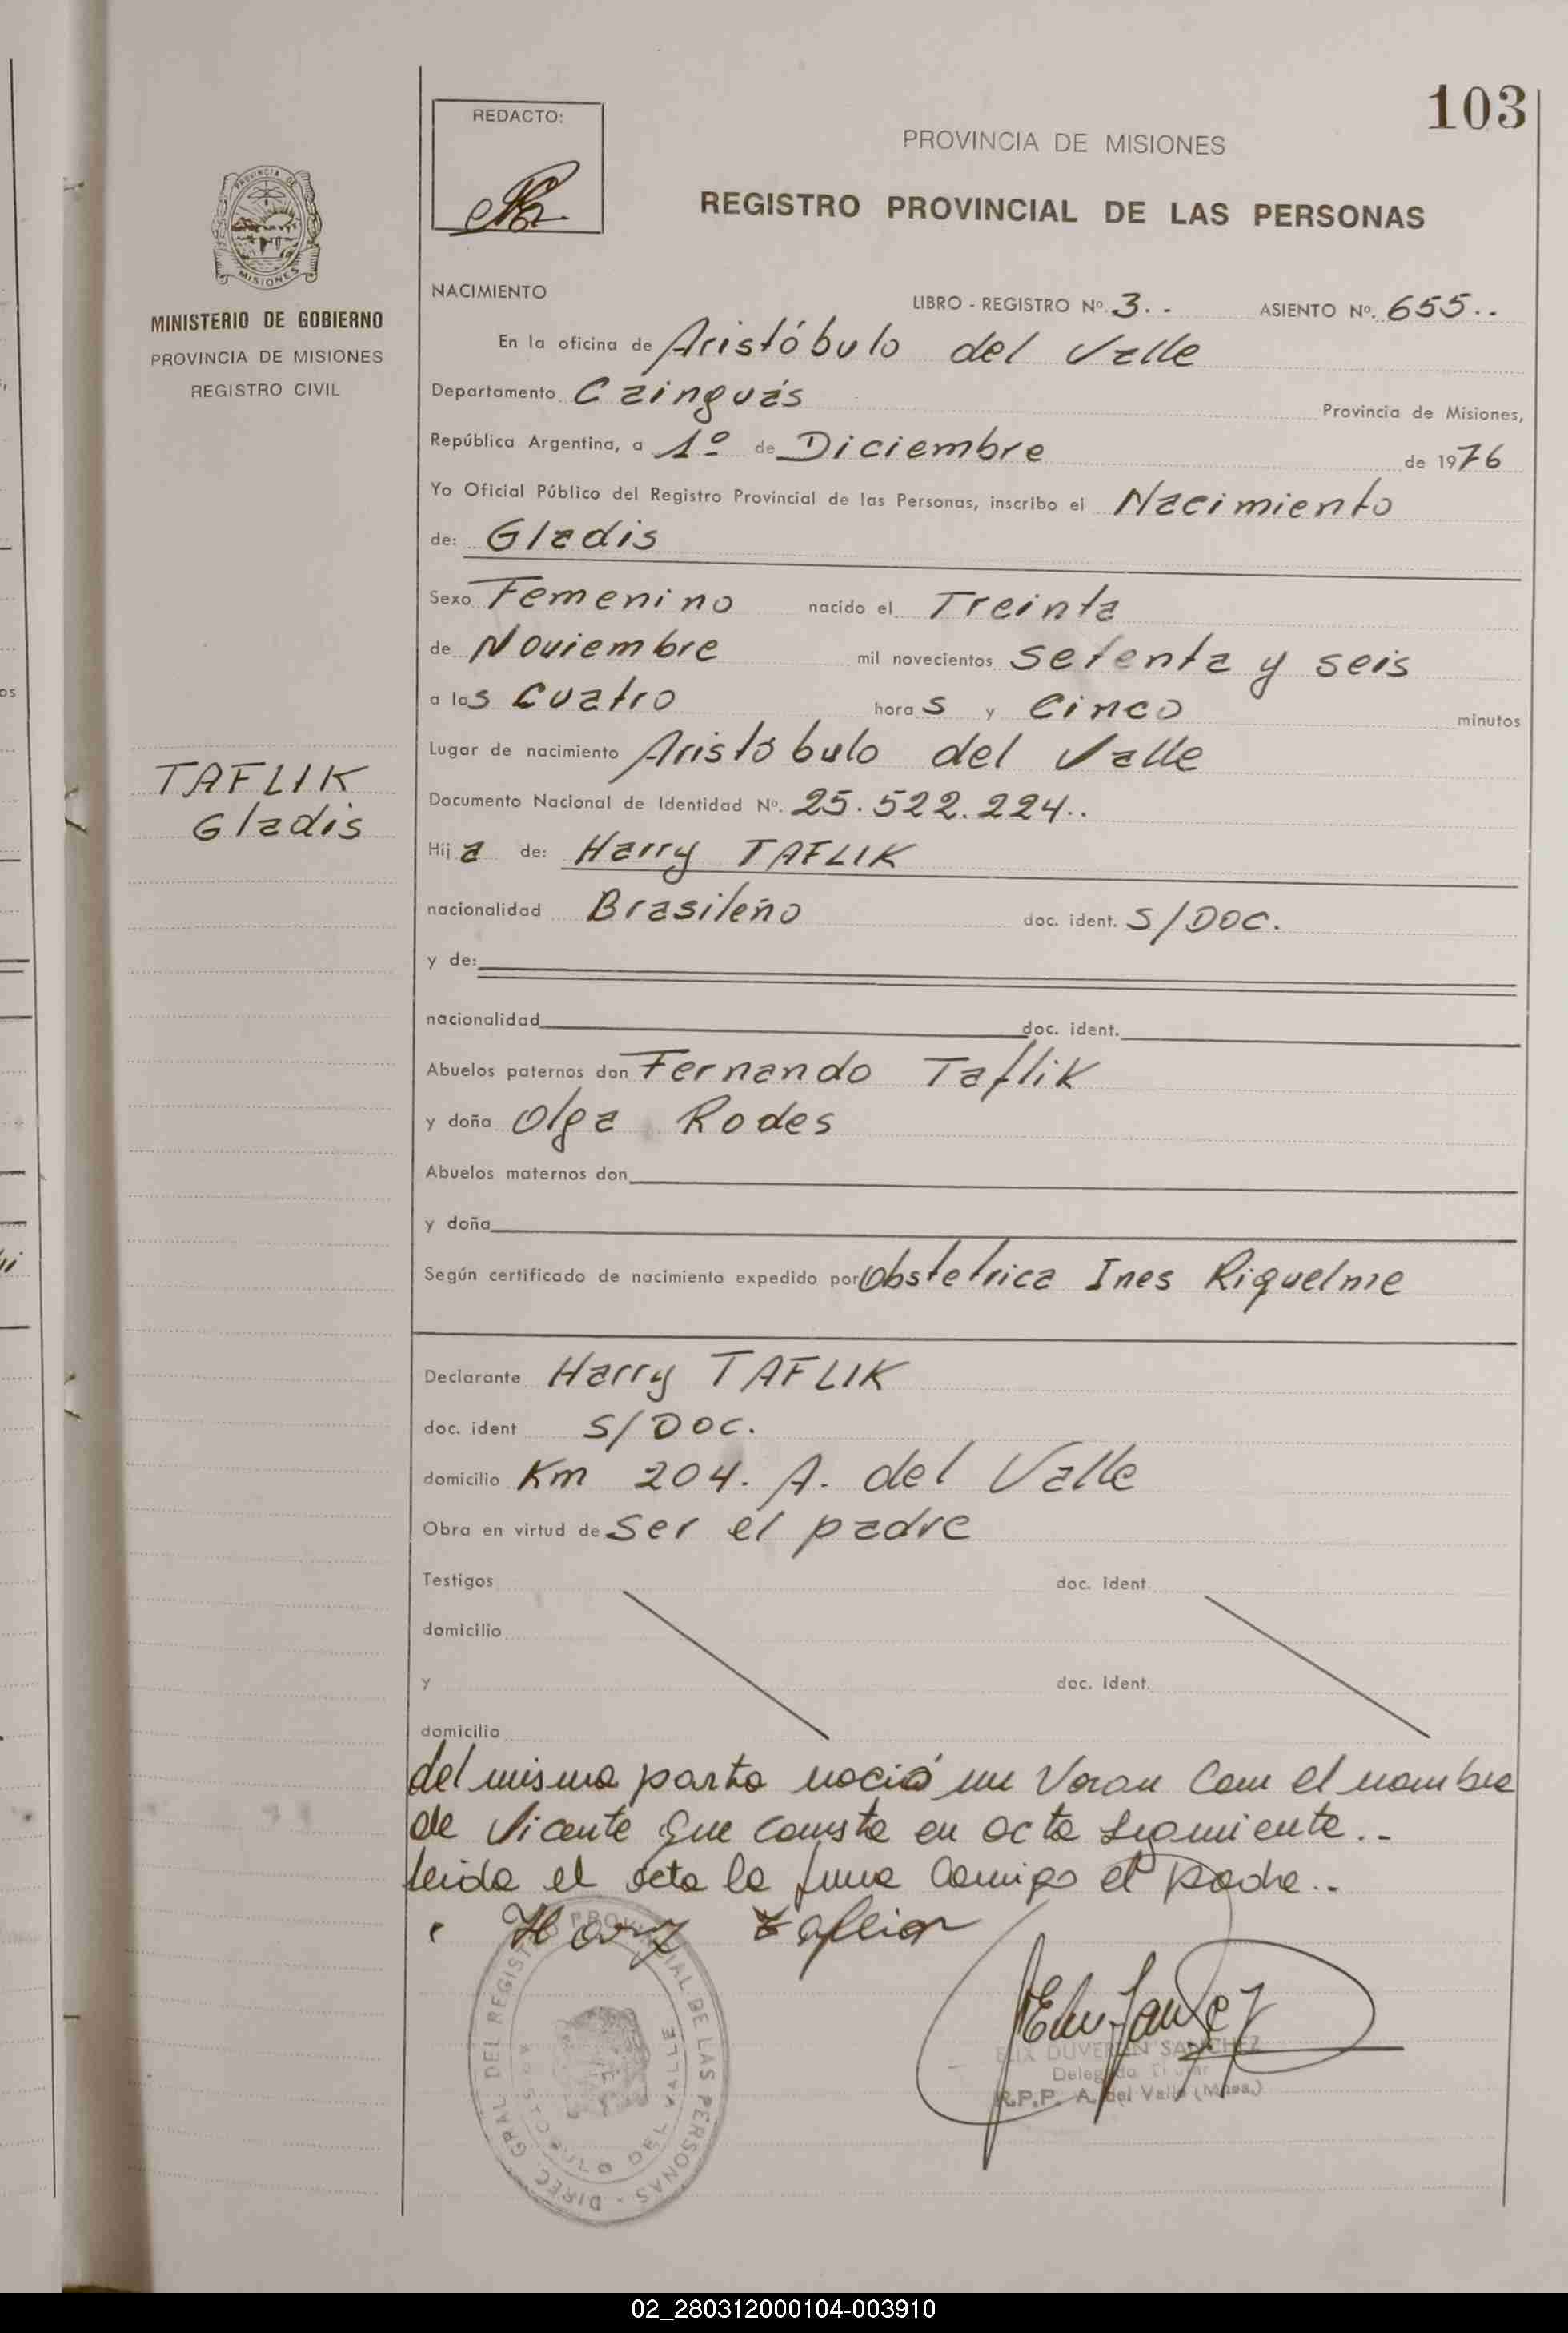 103
REDACTO:
PROVINCIA DE MISIONES
REGISTRO PROVINCIAL DE LAS PERSONAS
PROVINCIA DE
MISIONES
MINISTERIO DE GOBIERNO
PROVINCIA DE MISIONES
REGISTRO CIVIL
NACIMIENTO LIBRO - REGISTRO Nº. 3.. ASIENTO Nº. 655..
En la oficina de Aristóbulo del Valle
Departamento Cainguás Provincia de Misiones,
República Argentina, a 1º de Diciembre de 1976
Yo Oficial Público del Registro Provincial de las Personas, inscribo el Nacimiento
de: Gladis
Sexo Femenino nacido el Treinta
de Noviembre mil novecientos setenta y seis
a las cuatro horas y Cinco minutos
Lugar de nacimiento Aristóbulo del Valle
TAFLIK
Gladis
Documento Nacional de Identidad Nº. 25.522.224..
Hija de: Harry TAFLIK
nacionalidad Brasileño doc. ident. S/DOC.
y de:
nacionalidad doc. ident.
Abuelos paternos don Fernando Taflik
y doña Olga Rodes
Abuelos maternos don
y doña
Según certificado de nacimiento expedido por Obstetrica Ines Riquelme
Declarante Harry TAFLIK
doc. ident S/DOC.
domicilio Km 204. A. del Valle
Obra en virtud de ser el padre
Testigos doc. ident.
domicilio
y doc. Ident.
domicilio
del mismo parto nació un Varon Com el nombre
de Vicente que consta en acta siguiente..
leida el acta la firma Conmigo el padre..
Harry
DIREC. GRAL DEL REGISTRO PROVINCIAL DE LAS PERSONAS -
ARISTOBULO DEL VALLE
ELIX DUVERON SANCHEZ
R.P.P. A. del Valle (Mnes.)
02_280312000104-003910